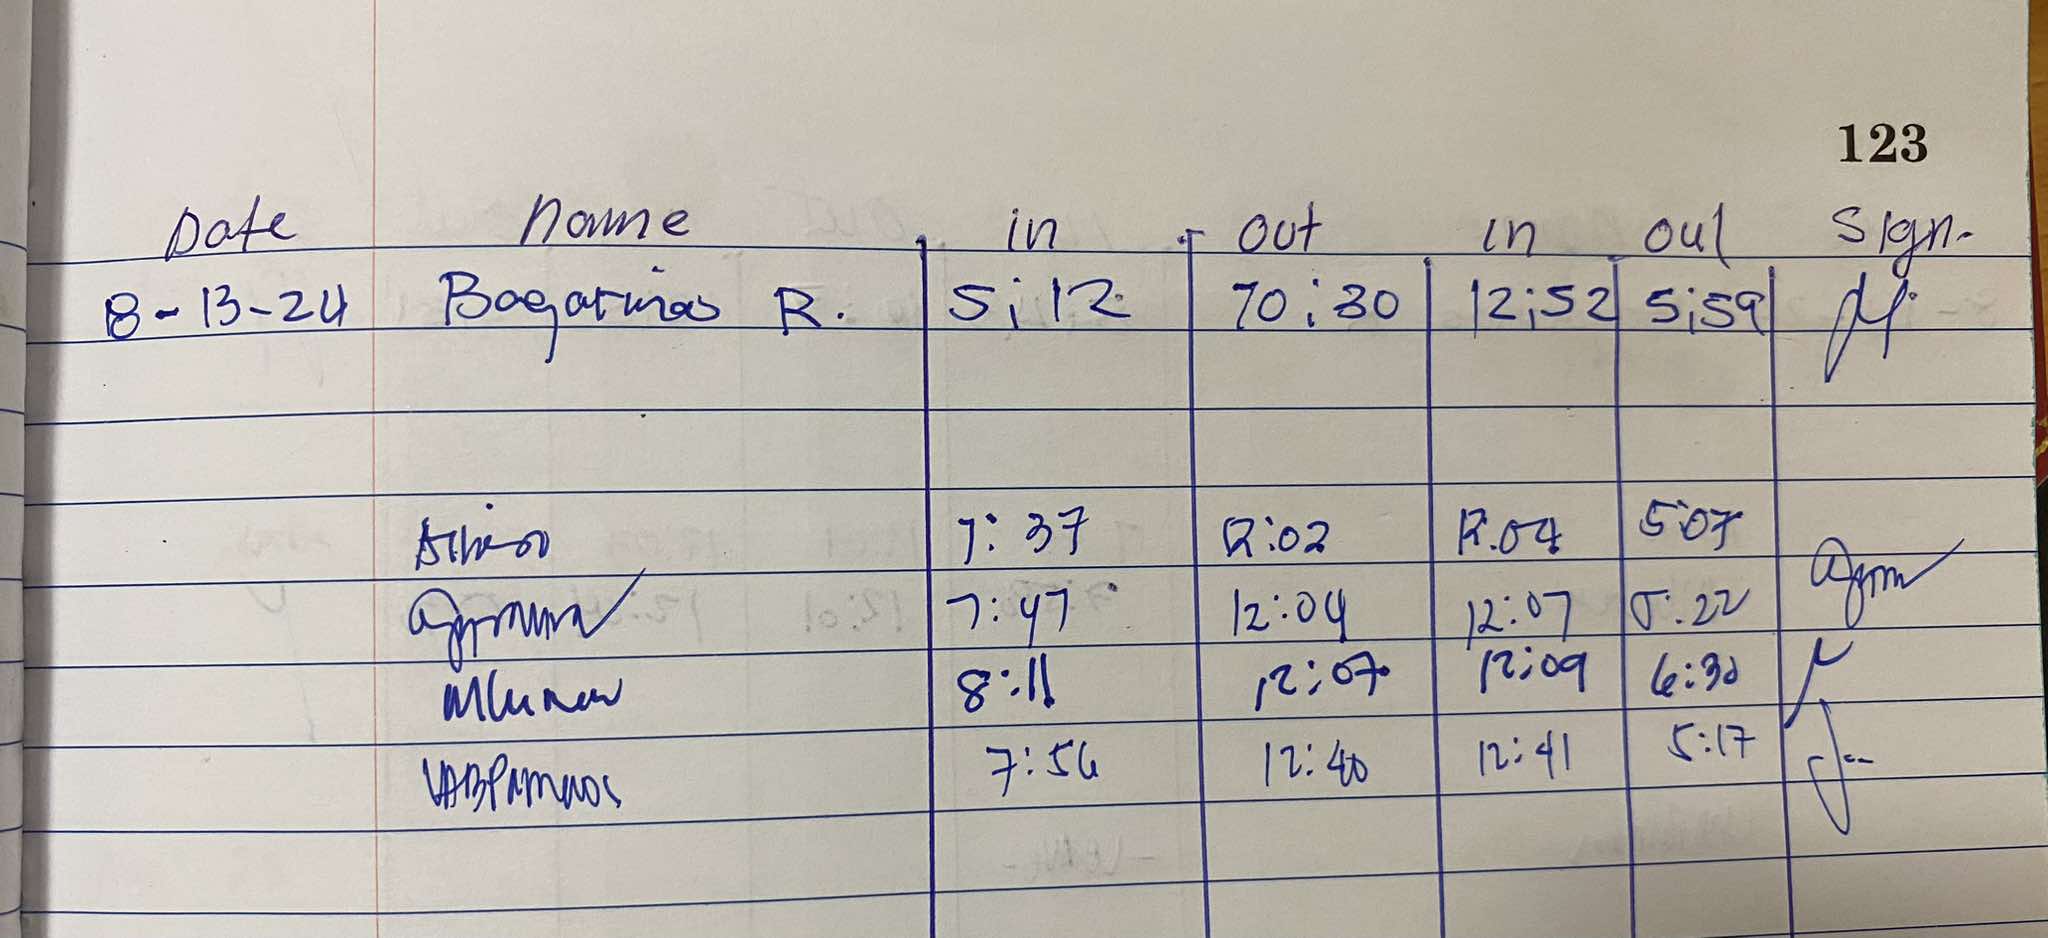 123
Date Name in out in out Sign.
8-13-24 Bagarinao R. 5;12 10;30 12;52 5;59
7:37 12:02 12.04 5:07
7:47 12:04 12:07 5:22
8:11 12:07 12:09 6:30
7:56 12:40 12:41 5:17